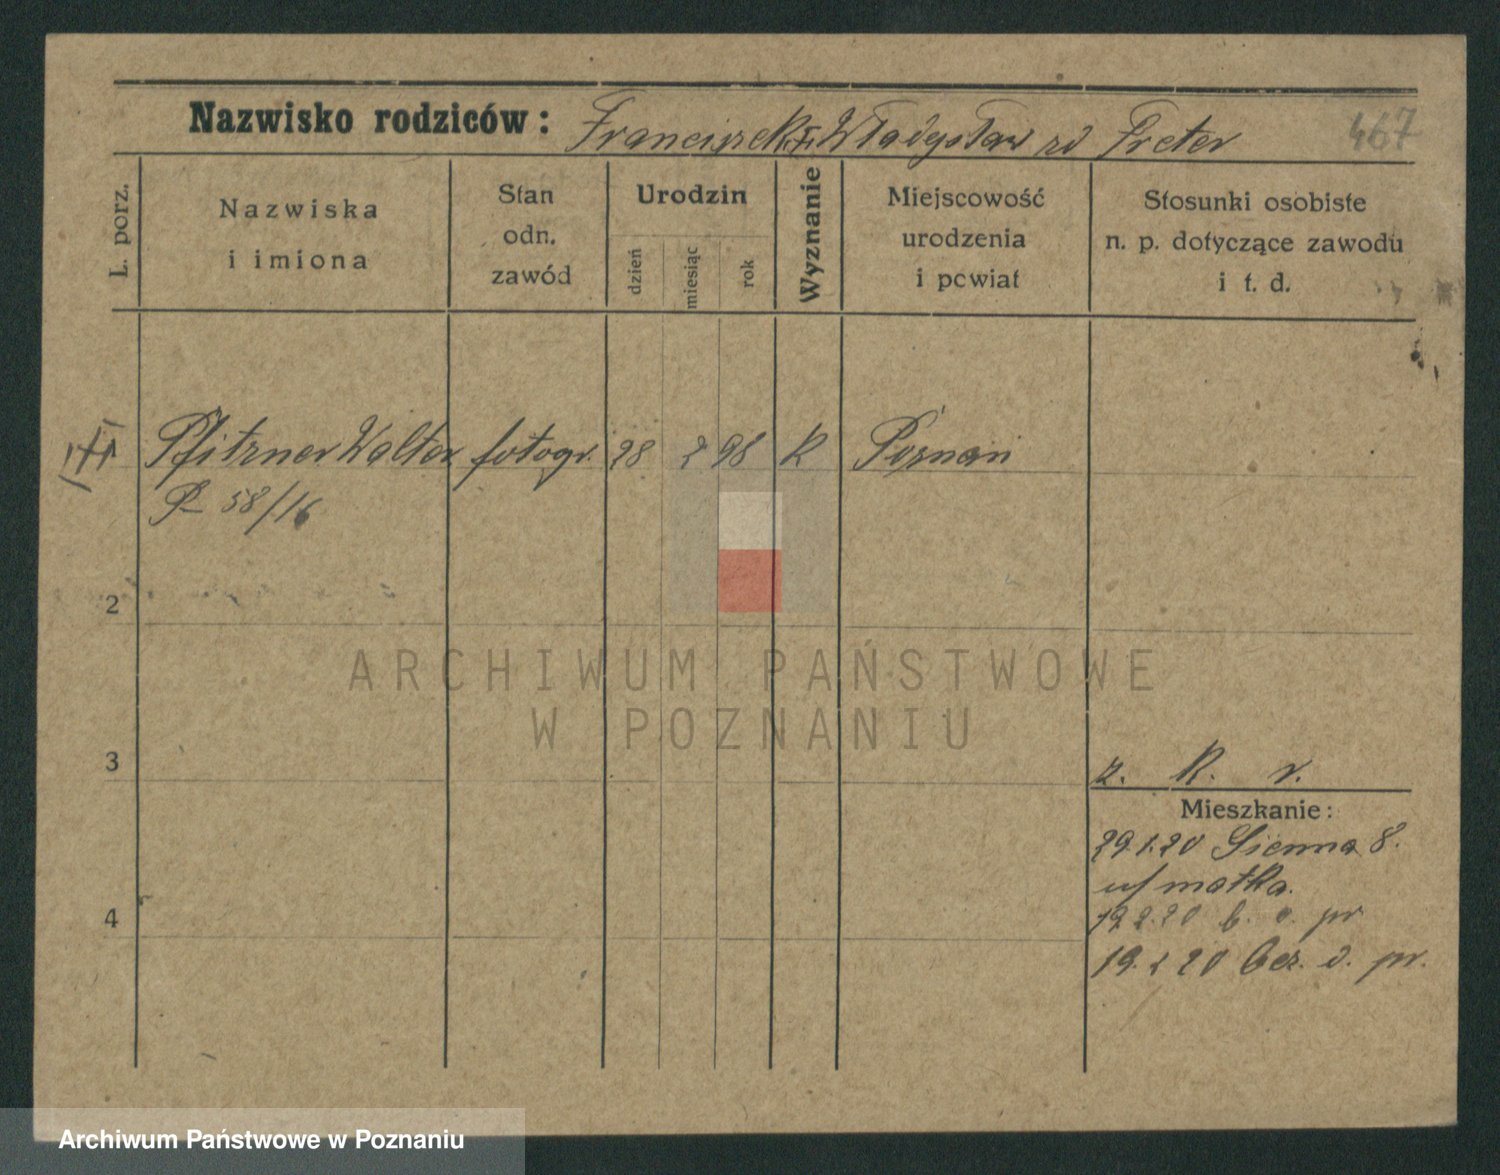 Nazwisko rodziców: Franciszek i Władysław zd Preter 467
L. porz.
Nazwiska i imiona
Stan odn. zawód
Urodzin
dzień
miesiąc
rok
Wyznanie
Miejscowość urodzenia i pcwiat
Stosunki osobiste n. p. dotyczące zawodu i t. d.
Pfitzner Walter fotogr. 28 2 98 K Poznań
58/16
2
ARCHIWUM PAŃSTWOWE
W POZNANIU
3
z. K. r.
Mieszkanie:
29.1.20 Sienna 8.
u/ matka.
4
19.2.20 b. d. pr
19.2 20 bez. d. pr.
Archiwum Państwowe w Poznaniu